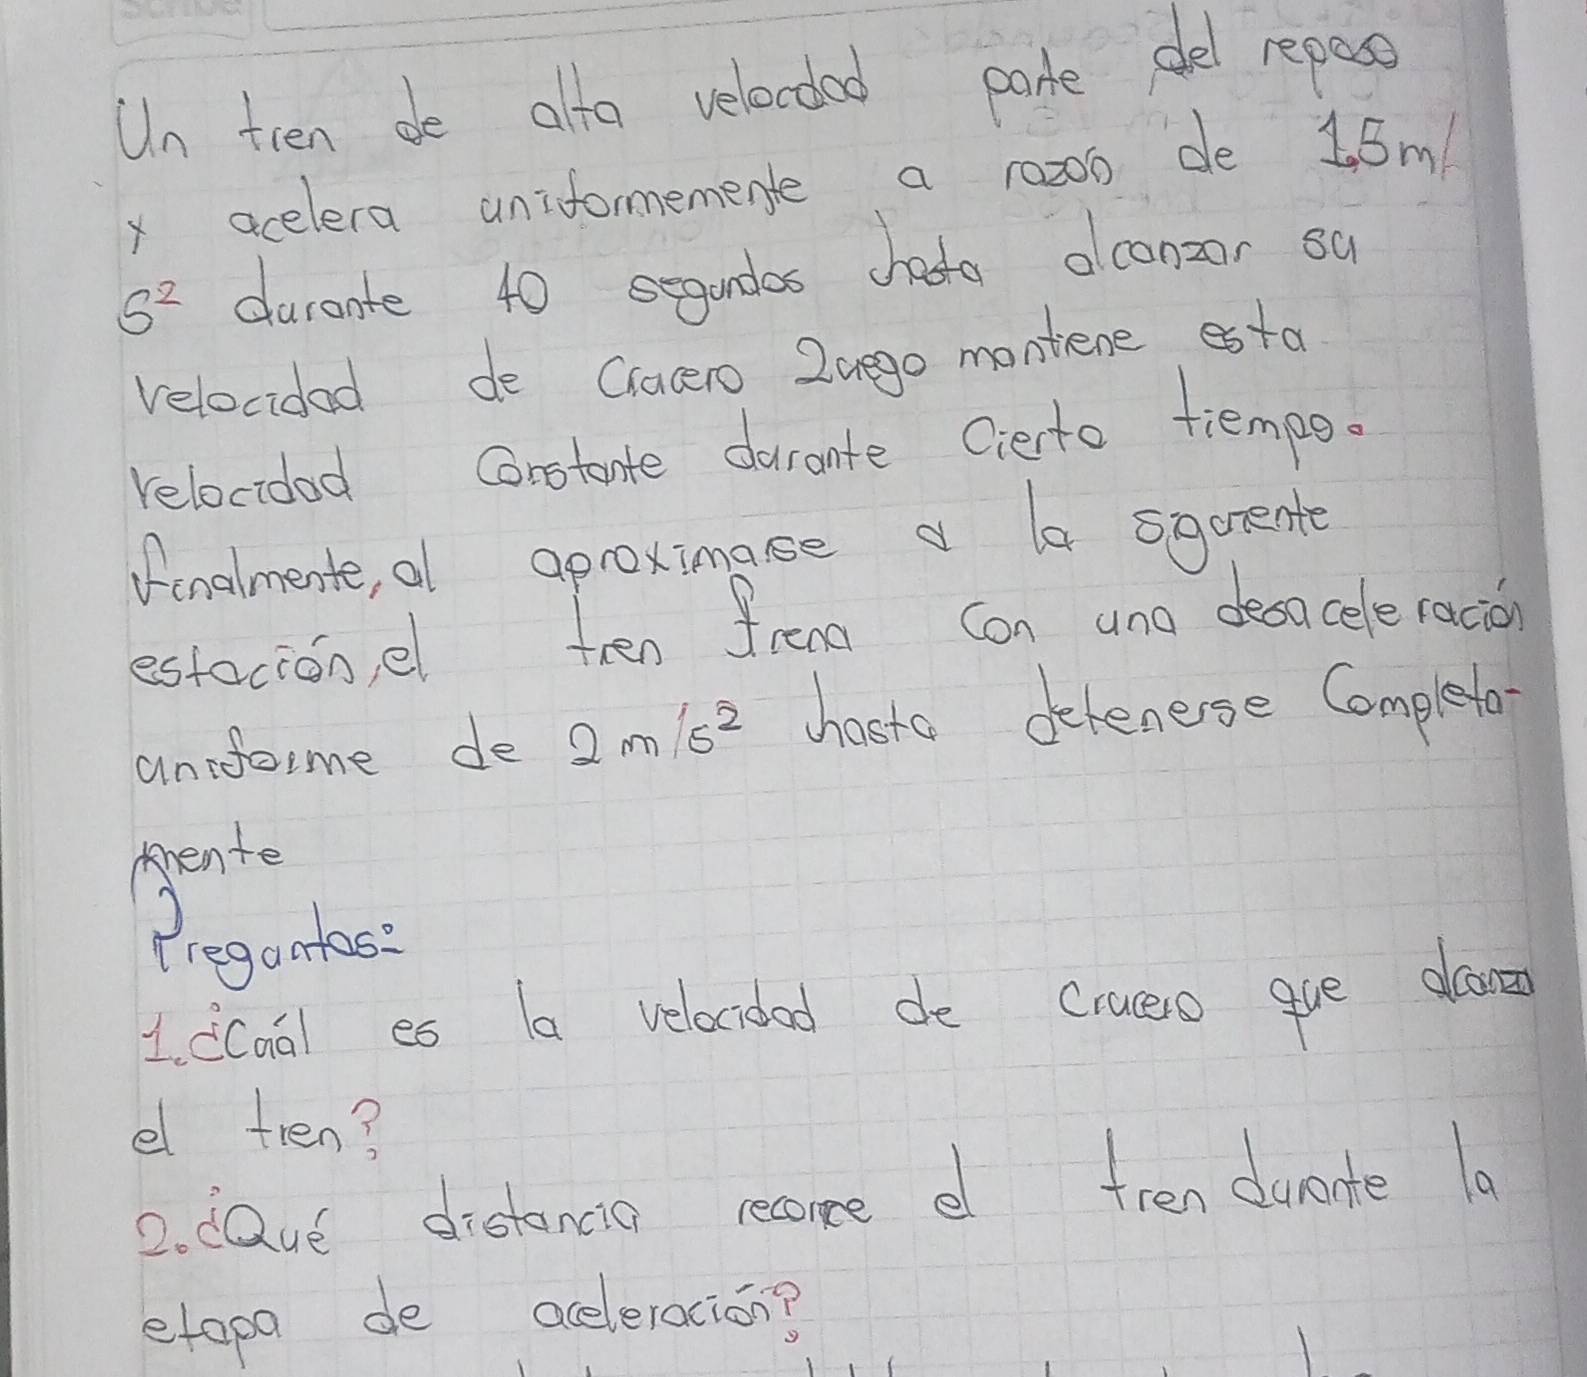 Un tren de alta velocidad parte del reposo
y acelera uniformemente a razón de 1.5 m/
s² durante 40 segundos hasta alcanzar su
velocidad de Crucero Luego mantiene esta
velocidad Constante durante Cierto tiempo.
finalmente, al aproximarse a la siguiente
estación, el tren frena Con una desaceleración
uniforme de 2 m/s² hasta detenerse Completa-
mente
Preguntas:
1. ¿Cuál es la velocidad de Crucero que alcanza
el tren?
2. ¿Qué distancia recorre el tren durante la
etapa de aceleración?